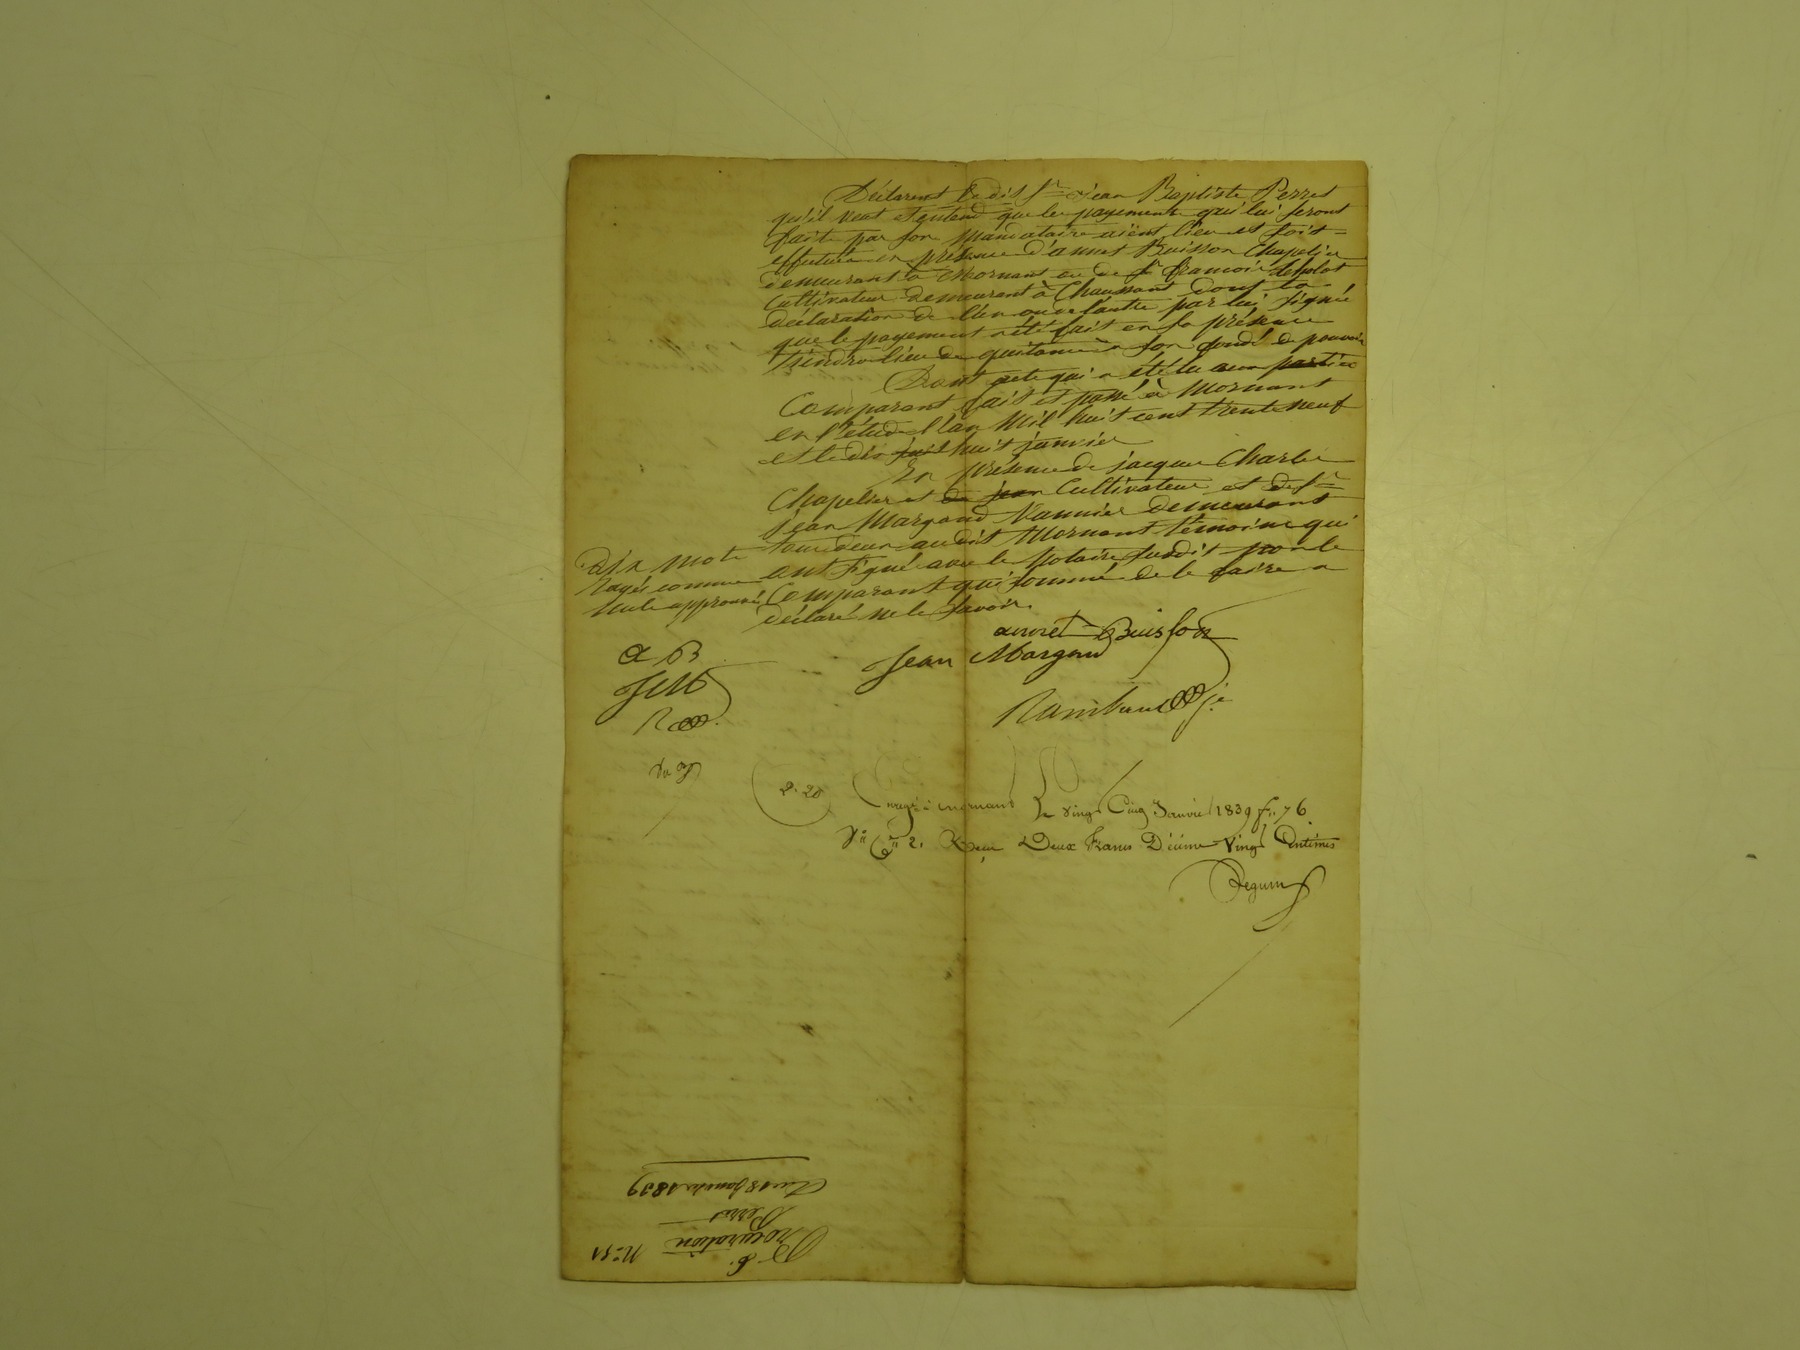 Déclarent le dit Sr Jean Baptiste Perret
qu'il veut et entend que les payements qui lui seront
faits par son mandataire aient lieu et soit
effectués en présence d'annet Buisson Chapelier
demeurant à Mornant ou de Sr francois
Cultivateur demeurant à Chaussant dont la
déclaration de l'un ou de l'autre par lui signée
que le payement a été fait en sa présence
tiendra lieu de quitance à son fondé de pouvoir
Dont acte qui a été lu aux parties
Comparant fait et passé à Mornant
en l'étude l'an Mil huit cent trente neuf
et le dix huit janvier
En présence de jacques Charles
Chapelier et de jean Cultivateur et de Sr
Jean Margand Vannier demeurant
tous deux audit Mornant témoins qui
ont signé avec le Notaire susdit non le
Comparant qui sommé de le faire a
déclaré ne le savoir.
Dix mots
Rayés comme
nuls approuvés
a B
JM
R
annet Buisson
Jean Margand
Rambaud
2. 20
Enregé à mornant le vingt Cinq Janvier 1839 fo 76
Vo Ce 2. Reçu Deux Francs Décime Vingt Centimes
No 51
Procuration
Perret
Du 18 Janvier 1839